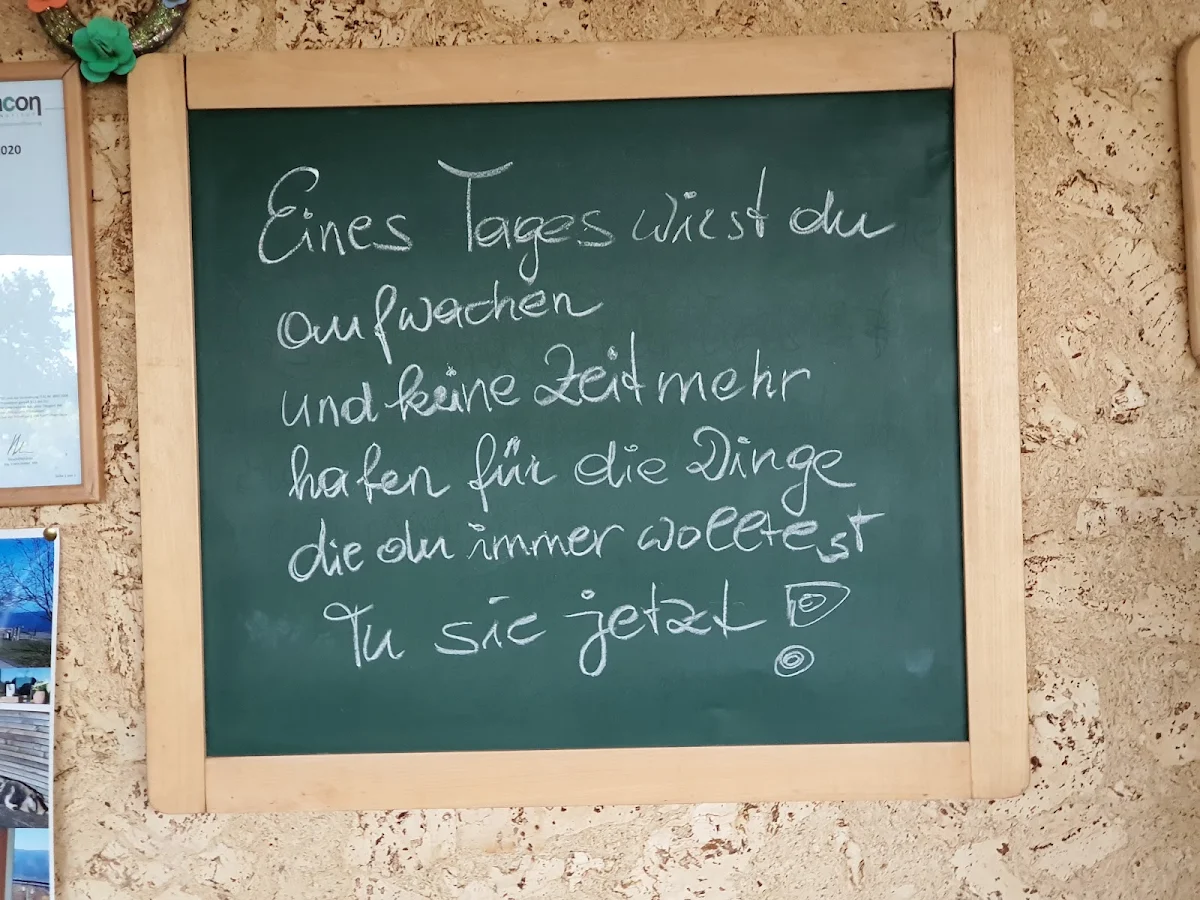 con
2020
Eines Tages wirst du
aufwachen
und keine Zeit mehr
haben für die Dinge
die du immer wolltest
Tu sie jetzt !